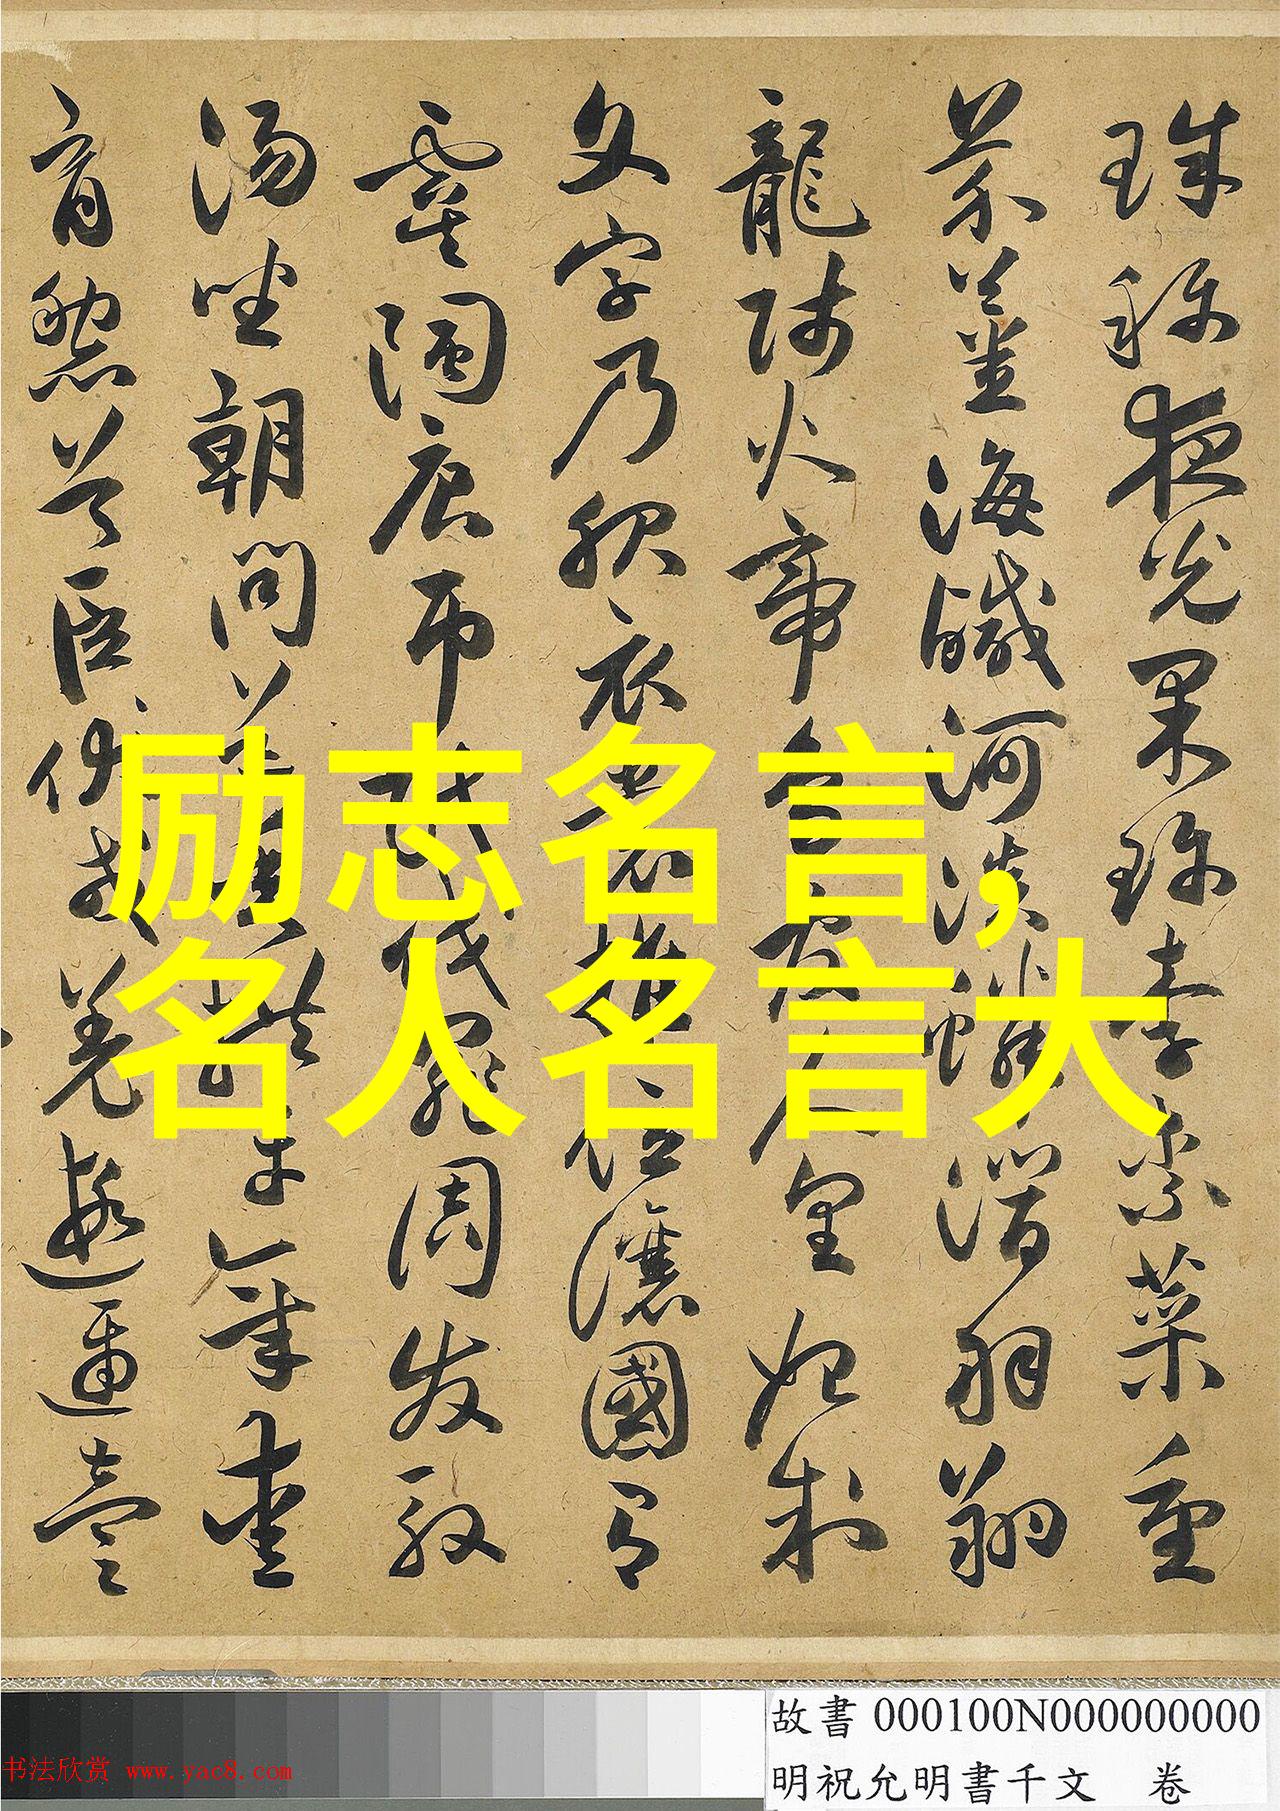 珠稱夜光果珍李柰菜重
芥薑海鹹河淡鱗潛羽翔
龍師火帝鳥官人皇始制
文字乃服衣裳推位讓國有
虞陶唐弔民伐罪周發殷
湯坐朝問道垂拱平章愛
育黎首臣伏戎羌遐邇壹
励志名言,
名人名言大
故書 000100N000000000
明祝允明書千文 卷
书法欣赏 www.yac8.com